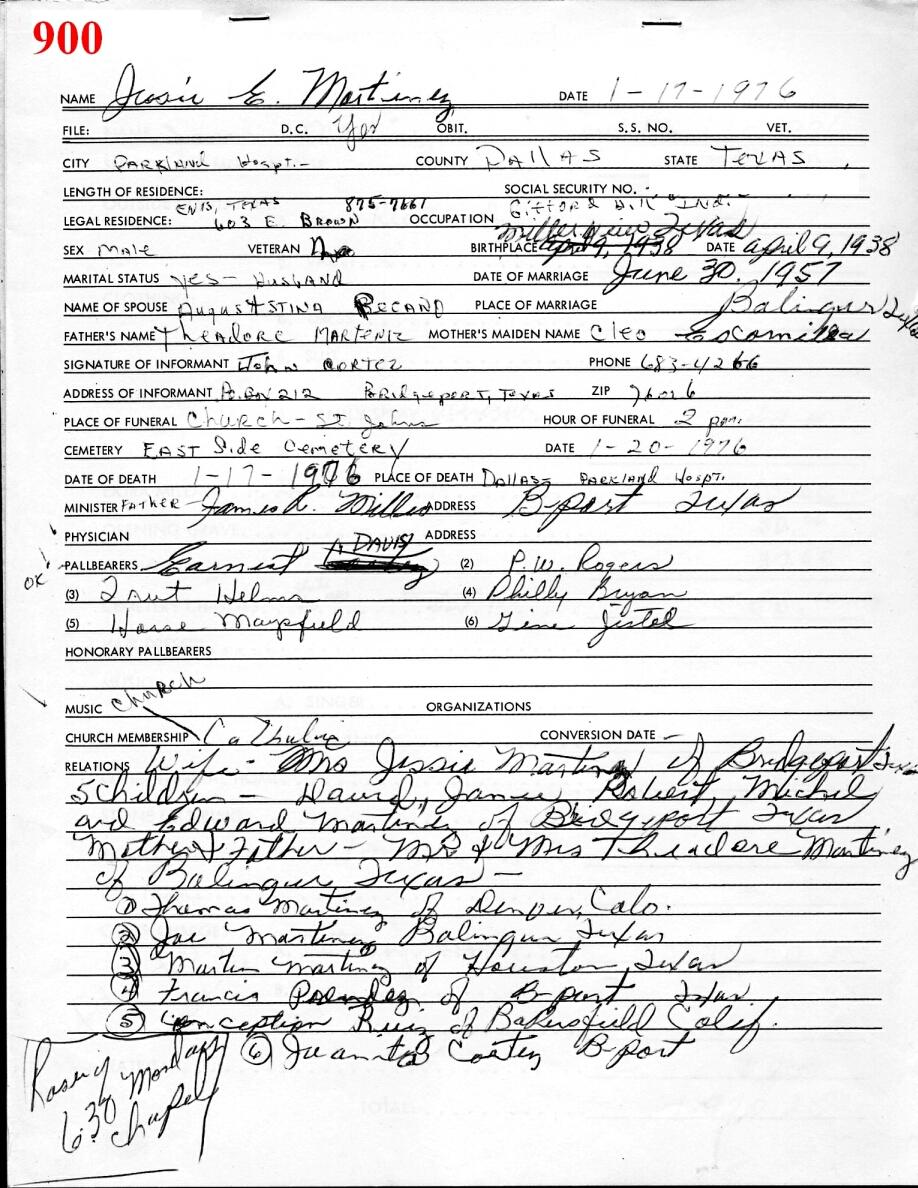 900
NAME Jessie E. Martinez DATE 1-17-1976
FILE: D.C. Yes OBIT. S.S. NO. VET.
CITY PARKLAND Hospt.- COUNTY DALLAS STATE TEXAS
LENGTH OF RESIDENCE: SOCIAL SECURITY NO.
ENIS, TEXAS 875-7661 Gifford Hill Indi
LEGAL RESIDENCE: 603 E. BROWN OCCUPATION
SEX Male VETERAN No BIRTHPLACE Texas DATE april 9, 1938
MARITAL STATUS yes- HUSBAND DATE OF MARRIAGE June 30. 1957
NAME OF SPOUSE AUGUSTSTINA PLACE OF MARRIAGE Balingur
FATHER'S NAME THEADORE MARTENIZ MOTHER'S MAIDEN NAME Cleo Escamilla
SIGNATURE OF INFORMANT John CORTEZ PHONE 683-4266
ADDRESS OF INFORMANT P.O. Box 212 Bridgeport, Texas ZIP 76026
PLACE OF FUNERAL Church - ST. Johns HOUR OF FUNERAL 2 pm.
CEMETERY EAST Side CEMETERY DATE 1-20-1976
DATE OF DEATH 1-17-1976 PLACE OF DEATH DALLAS PARKLAND Hospt.
MINISTER FATHER James R. Miller ADDRESS B-port Texas
PHYSICIAN ADDRESS
OK PALLBEARERS Earnest A DAVIS (2) P.W. Rogers
(3) Helms (4) Philly Bryan
(5) Maypfield (6) Gene Jistel
HONORARY PALLBEARERS
MUSIC church ORGANIZATIONS
CHURCH MEMBERSHIP Catholic CONVERSION DATE -
RELATIONS Wife - Mrs Jessie Martinez of Bridgeport Texas
5 children - David, Janie Robert, Michel
and Edward Martinez of Bridgeport Texas
Mother & Father - MR & Mrs Theadore Martinez
of Balingur, Texas -
① Thomas Martinez of Denver, Colo.
② Joe Martinez Balingur Texas
③ Martin Martinez of Houston, Texas
④ Francis of B-port Texas
⑤ Conception Ruiz of Bakersfield Calif.
⑥ Juanita Cortez B-port
Rosery
6:30 Monday
Chapel